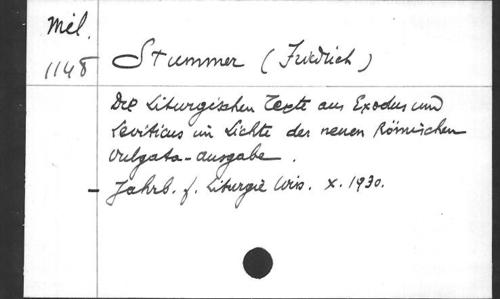 Mél.
1148
Stummer (Friedrich)
Die Liturgischen Texte aus Exodus und
Leviticus im Lichte der neuen Römischen
Vulgata-ausgabe.
- Jahrb. f. Liturgie Wiss. X. 1930.